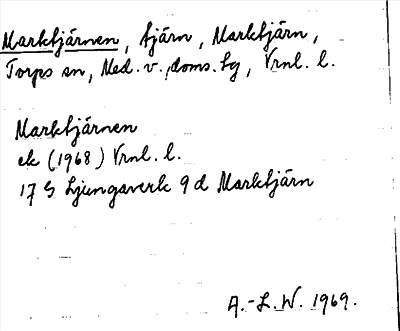 Marktjärnen, tjärn, Marktjärn,
Torps sn, Med. v. doms. tg, Vrnl. l.
Marktjärnen
ek (1968) Vrnl. l.
17 G Ljungaverk 9 d Marktjärn
A.-L. W. 1969.